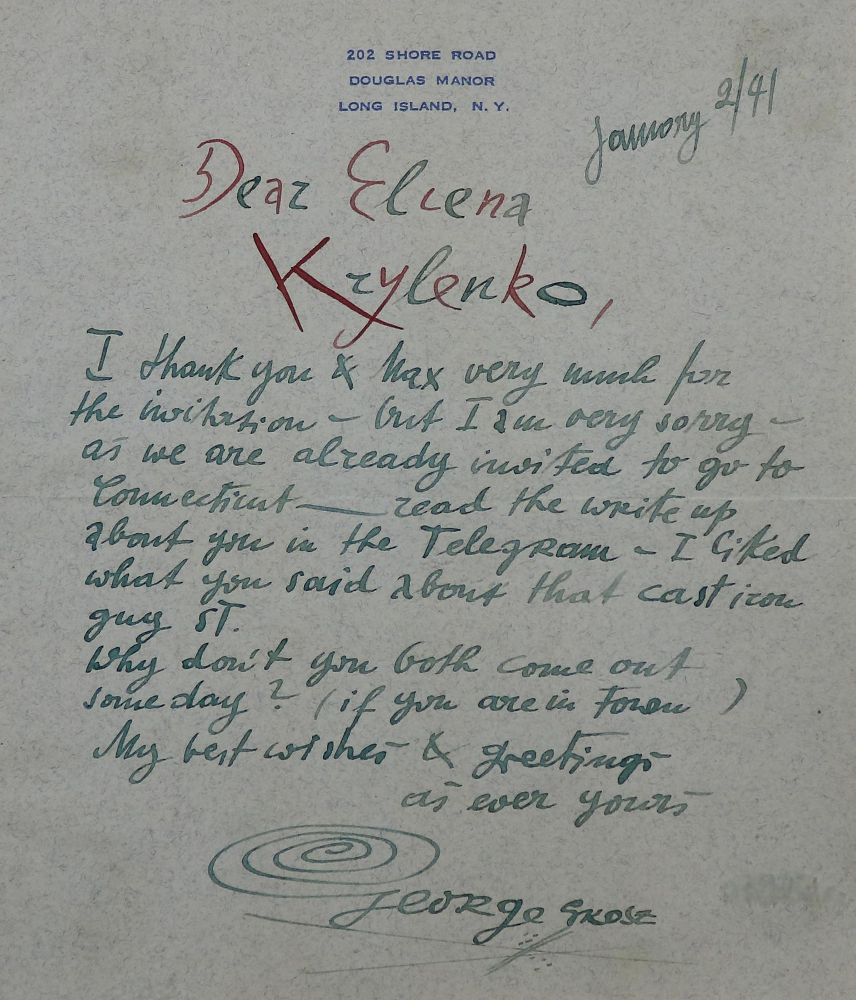 202 SHORE ROAD
DOUGLAS MANOR
LONG ISLAND, N. Y.
January 2/41
Dear Eliena
Krylenko,
I thank you & Max very much for
the invitation – but I am very sorry –
as we are already invited to go to
Connecticut — read the write up
about you in the Telegram – I liked
what you said about that cast iron
guy ST.
Why don't you both come out
someday? (if you are in town)
My best wishes & greetings
as ever yours
George Grosz